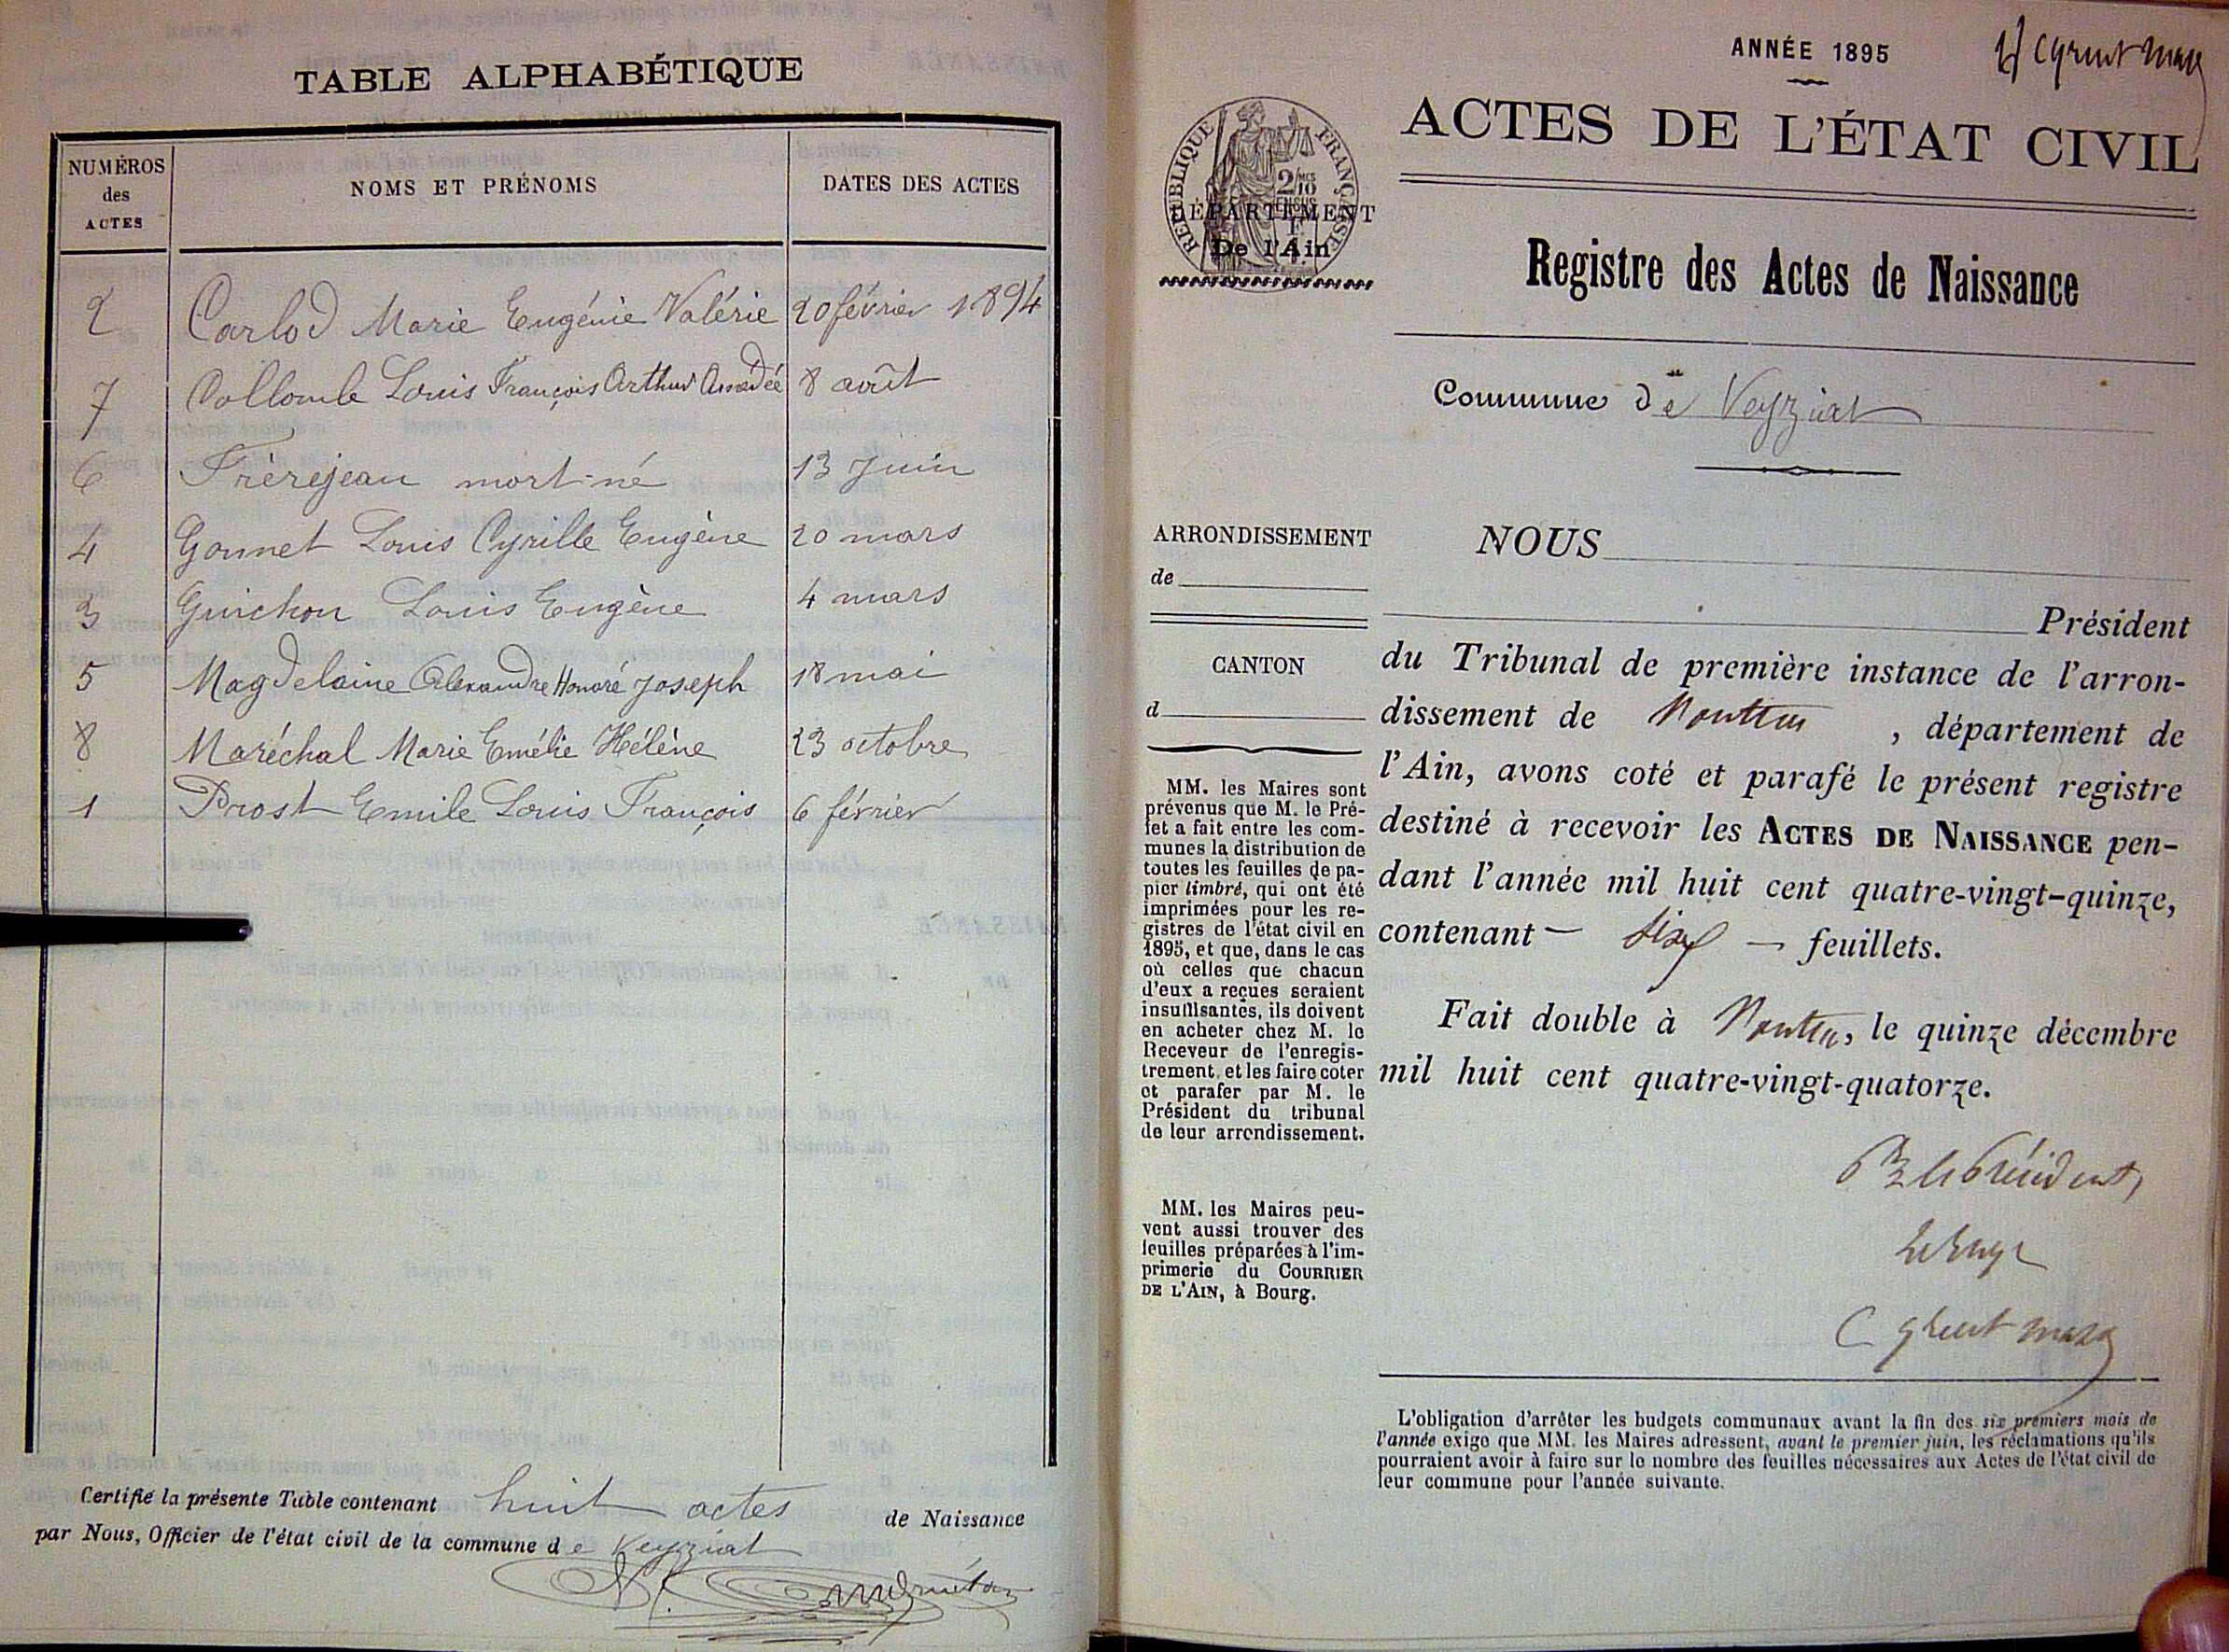 TABLE ALPHABÉTIQUE
NUMÉROS des ACTES NOMS ET PRÉNOMS DATES DES ACTES
2 Carlod Marie Eugénie Valérie 20 février 1894
7 Collomb Louis François Arthur Amédée 8 août
6 Frèrejean mort-né 13 Juin
4 Gonnet Louis Cyrille Eugène 20 mars
3 Guichon Louis Eugène 4 mars
5 Magdelaine Alexandre Honoré Joseph 18 mai
8 Maréchal Marie Emélie Hélène 23 octobre
1 Prost Emile Louis François 6 février
Certifié la présente Table contenant huit actes de Naissance
par Nous, Officier de l'état civil de la commune de Veyziat
ANNÉE 1895
ACTES DE L'ÉTAT CIVIL
RÉPUBLIQUE FRANÇAISE
2/10 MES
EN SUS
DÉPARTEMENT
De l'Ain
Registre des Actes de Naissance
Commune de Veyziat
ARRONDISSEMENT
de
CANTON
d
MM. les Maires sont
prévenus que M. le Pré-
fet a fait entre les com-
munes la distribution de
toutes les feuilles de pa-
pier timbré, qui ont été
imprimées pour les re-
gistres de l'état civil en
1895, et que, dans le cas
où celles que chacun
d'eux a reçues seraient
insuffisantes, ils doivent
en acheter chez M. le
Receveur de l'enregis-
trement, et les faire coter
et parafer par M. le
Président du tribunal
de leur arrondissement.
MM. les Maires peu-
vent aussi trouver des
feuilles préparées à l'im-
primerie du COURRIER
DE L'AIN, à Bourg.
NOUS
Président
du Tribunal de première instance de l'arron-
dissement de Nantua , département de
l'Ain, avons coté et parafé le présent registre
destiné à recevoir les ACTES DE NAISSANCE pen-
dant l'année mil huit cent quatre-vingt-quinze,
contenant — six — feuillets.
Fait double à Nantua, le quinze décembre
mil huit cent quatre-vingt-quatorze.
le Président,
Le Juge
L'obligation d'arrêter les budgets communaux avant la fin des six premiers mois de
l'année exige que MM. les Maires adressent, avant le premier juin, les réclamations qu'ils
pourraient avoir à faire sur le nombre des feuilles nécessaires aux Actes de l'état civil de
leur commune pour l'année suivante.